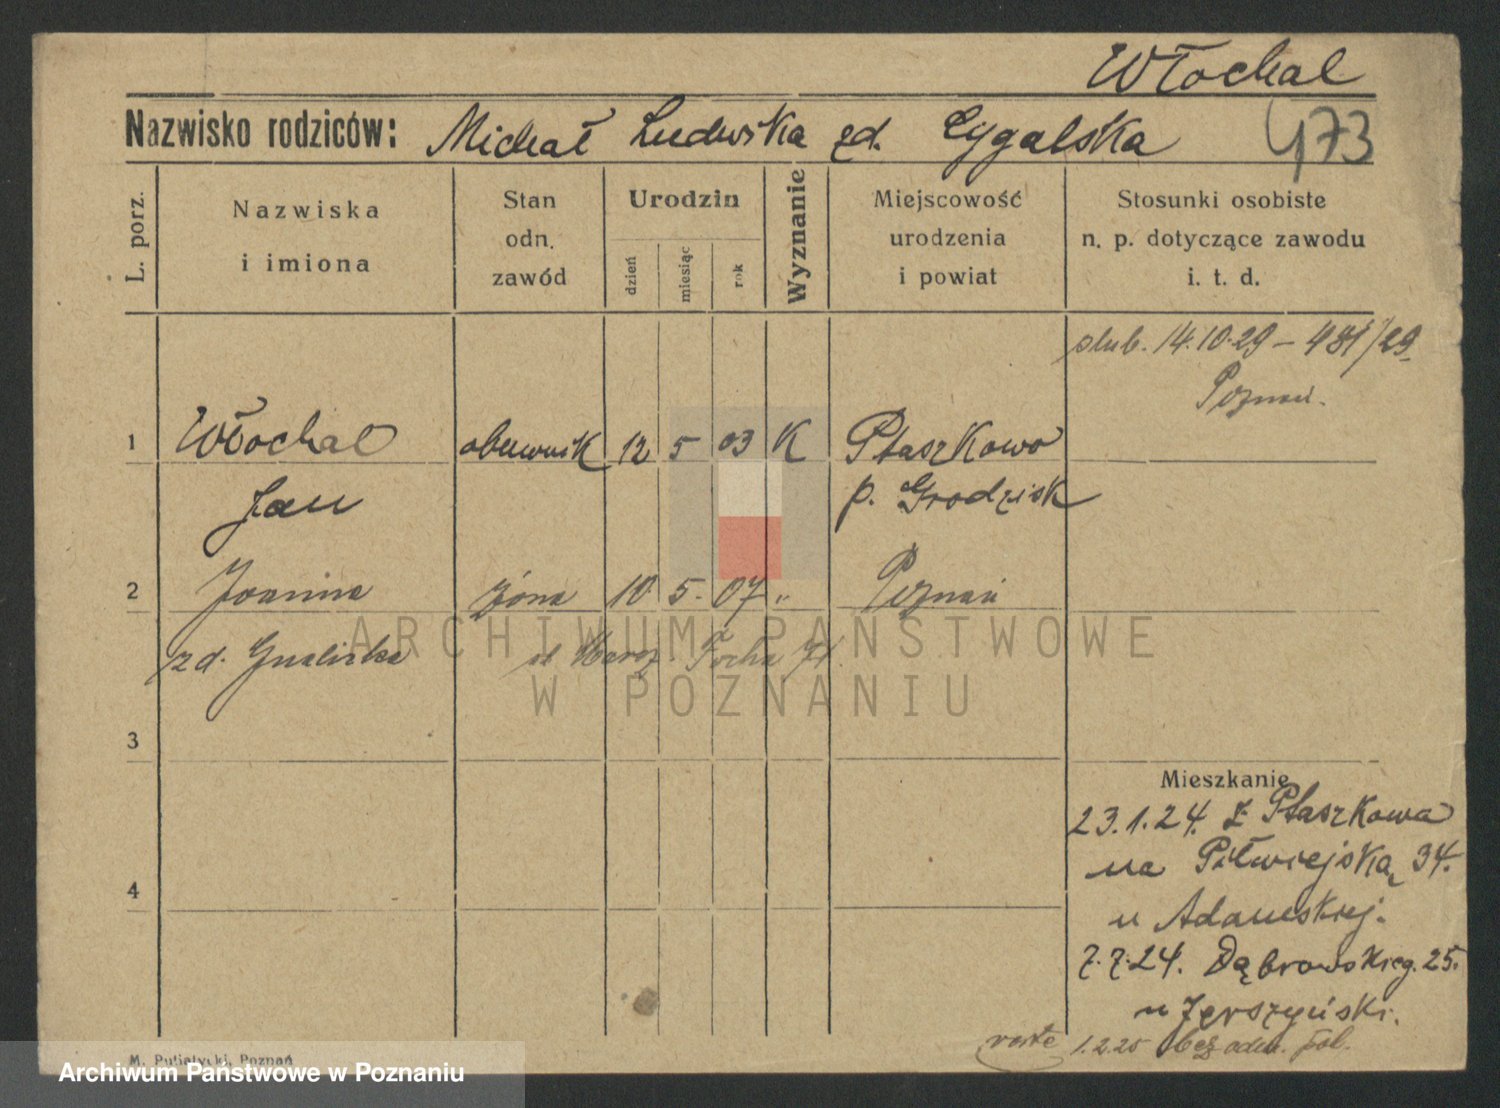 Włochal
Nazwisko rodziców: Michał Ludwika zd. Cygalska
473
L. porz.
Nazwiska
i imiona
Stan
odn.
zawód
Urodzin
dzień
miesiąc
rok
Wyznanie
Miejscowość
urodzenia
i powiat
Stosunki osobiste
n. p. dotyczące zawodu
i. t. d.
ślub. 14.10.29 – 481/29
Poznań.
1 Włochal obuwnik 12 5 03 K Ptaszkowo
Jan p. Grodzisk
2 Joanna żona 10 5. 07 " Poznań
zd. Focha
ARCHIWUM PAŃSTWOWE
W POZNANIU
3
Mieszkanie
23.1.24. z Ptaszkowa
na Półwiejską 34.
4
u Adamskiej.
7.7.24. Dąbrowskieg. 25.
u
1.2.25 bez
M. Putiatycki, Poznań
Archiwum Państwowe w Poznaniu